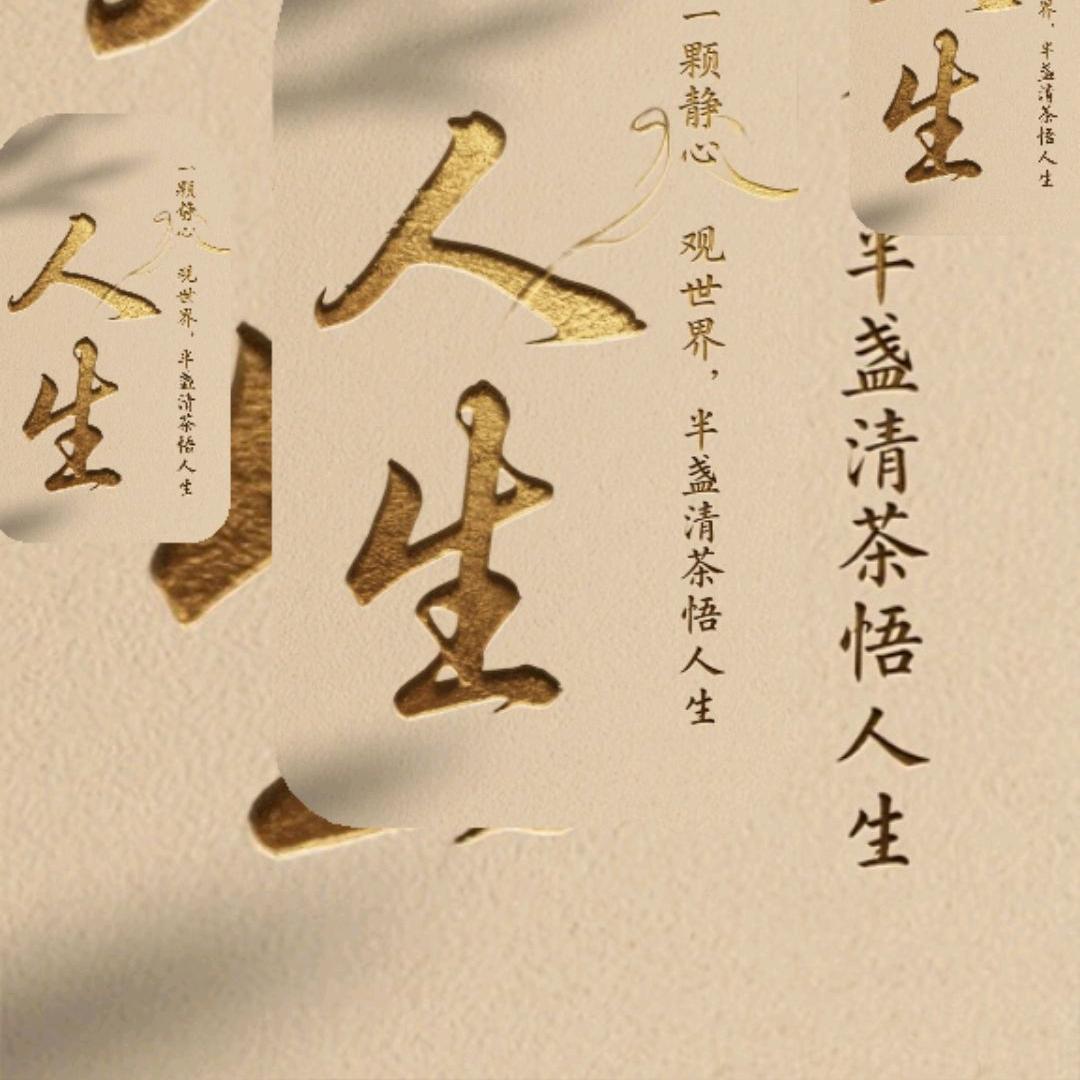 人生
一颗静心 观世界，半盏清茶悟人生
人生
一颗静心 观世界，半盏清茶悟人生
半盏清茶悟人生
生
界，半盏清茶悟人生